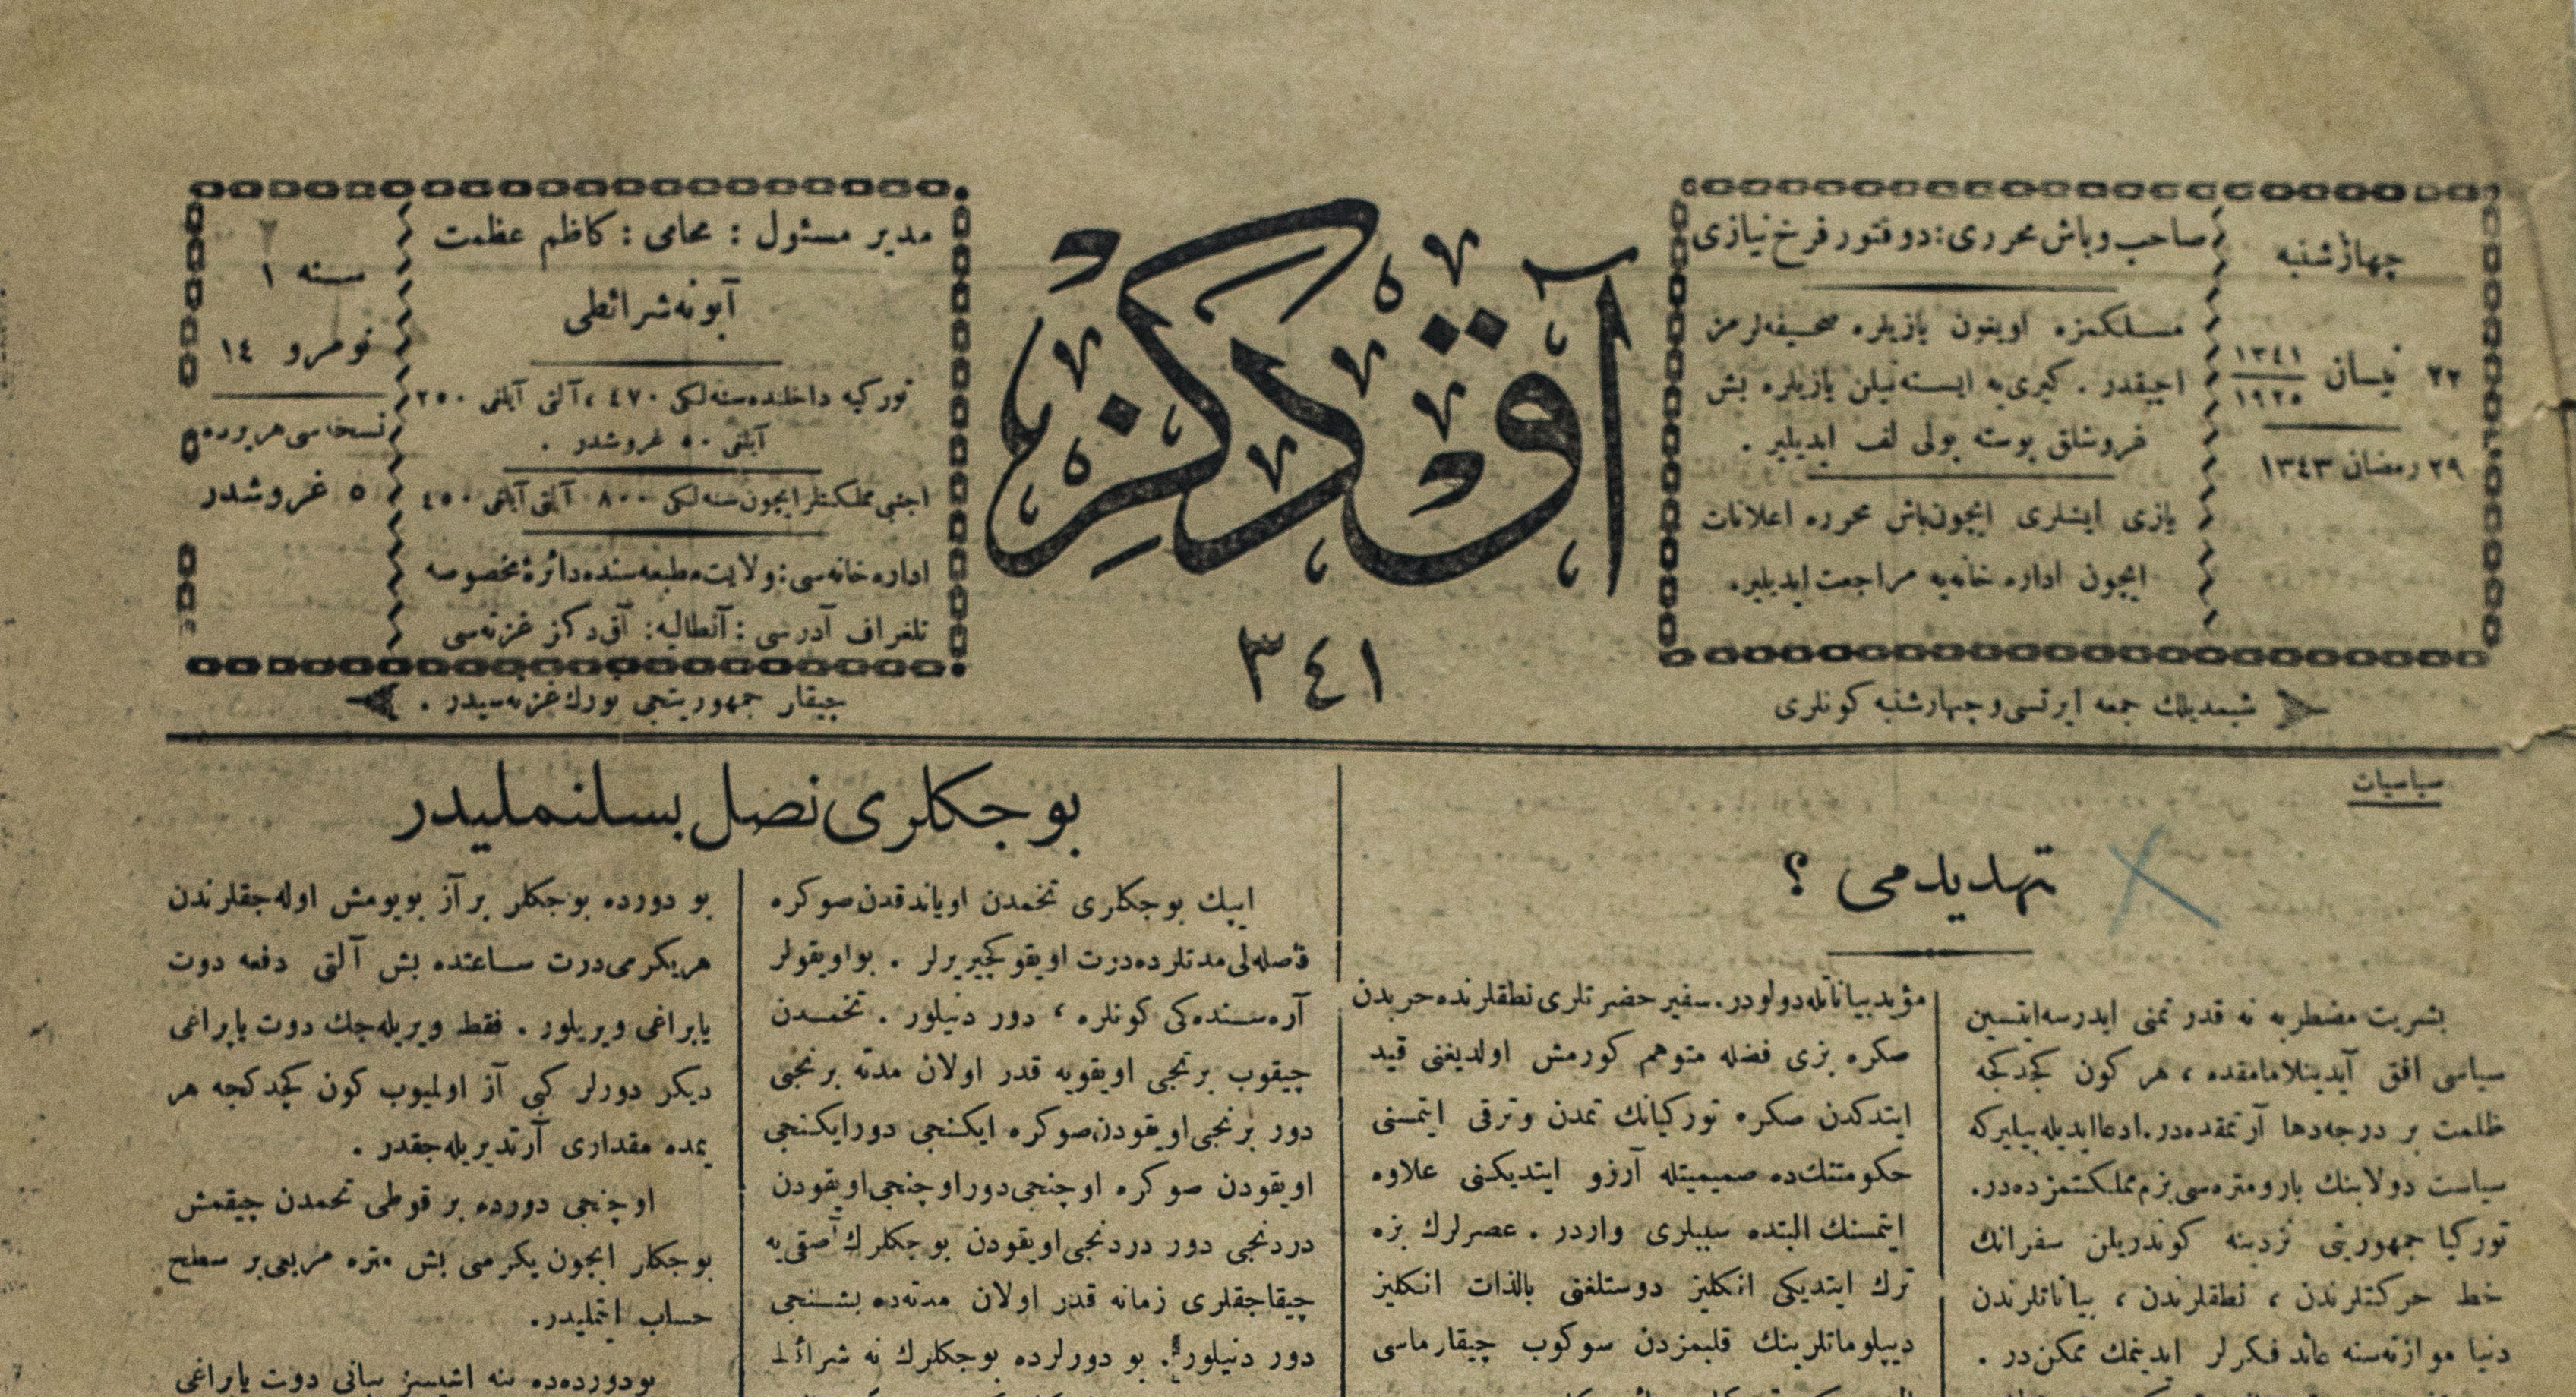 چهارشنبه
٢٢ نیسان ١٣٤١
١٩٢٥
٢٩ رمضان ١٣٤٣
صاحب وباش محرری : دوقتور فرخ نیازی
مسلكمزه اویغون یازیلره صحیفه لرمز
اچیقدر . كیری یه ایسته نیلن یازیلره بش
غروشلق پوسته پولی لف ایدیلیر .
یازی ایشلری ایچون باش محرره اعلانات
ایچون اداره خانه یه مراجعت ایدیلیر .
آق دكز
٣٤١
مدیر مسئول : محامی : كاظم عظمت
آبونه شرائطی
توركیه داخلنده سنه لكی ٤٧٠ ، آلتی آیلغی ٢٥٠
آیلغی ٥٠ غروشدر .
اجنبی مملكتلر ایچون سنه لكی ٨٠٠ آلتی آیلغی ٤٥٠
اداره خانه سی : ولایت مطبعه سنده دائرهٔ مخصوصه
تلغراف آدرسی : آنطالیه : آق دكز غزته سی
سنه ١
نومرو ١٤
نسخه سی هر یرده
٥ غروشدر
شیمدیلك جمعه ایرتسی و چهارشنبه كونلری
چیقار جمهوریتجی تورك غزته سیدر .
سیاسیات
تهدیدمی ؟
بشریت مضطربه نه قدر تمنی ایدرسه ایتسین
سیاسی افق آیدینلامامقده ، هر كون كچدكجه
ظلمت بر درجه دها آرتمقده در . ادعا ایدیله بیلیركه
سیاست دولابنك بارومتره سی بزم مملكتمزده در .
توركیا جمهوریتی نزدینه كوندریلن سفرانك
خط حركتلرندن ، نطقلرندن ، بیاناتلرندن
دنیا موازنه سنه عائد فكرلر ایدینمك ممكن در .
مؤید بیاناتله دولودر . سفیر حضرتلری نطقلرنده حربدن
صكره بزی فضله متوهم كورمش اولدیغنی قید
ایتدكدن صكره توركیانك تمدن وترقی ایتمسنی
حكومتنك ده صمیمیتله آرزو ایتدیكنی علاوه
ایتمسنك البتده سببلری واردر . عصرلرك بزه
ترك ایتدیكی انكلیز دوستلغنی بالذات انكلیز
دیپلوماتلرینك قلبمزدن سوكوب چیقارماسی
بوجكلری نصل بسلنملیدر
ایپك بوجكلری تخمدن اویاندقدن صوكره
فاصله لی مدتلرده درت اویقو كچیریرلر . بو اویقولر
آره سنده كی كونلره ، دور دنیلور . تخمدن
چیقوب برنجی اویقویه قدر اولان مدته برنجی
دور برنجی اویقودن صوكره ایكنجی دور ایكنجی
اویقودن صوكره اوچنجی دور اوچنجی اویقودن
دردنجی دور دردنجی اویقودن بوجكلرك آصقی یه
چیقاجقلری زمانه قدر اولان مدته ده بشنجی
دور دنیلور . بو دورلرده بوجكلرك نه شرائط
بو دورده بوجكلر بر آز بویومش اوله جقلرندن
هر یكرمی درت ساعتده بش آلتی دفعه دوت
یاپراغی ویریلور . فقط ویریله جك دوت یاپراغی
دیكر دورلر كبی آز اولمیوب كون كچدكجه هر
یمده مقداری آرتدیریله جقدر .
اوچنجی دورده بر قوطی تخمدن چیقمش
بوجكلر ایچون یكرمی بش متره مربعی بر سطح
حساب ایتملیدر .
بو دورده ده ینه دوت یاپراغی